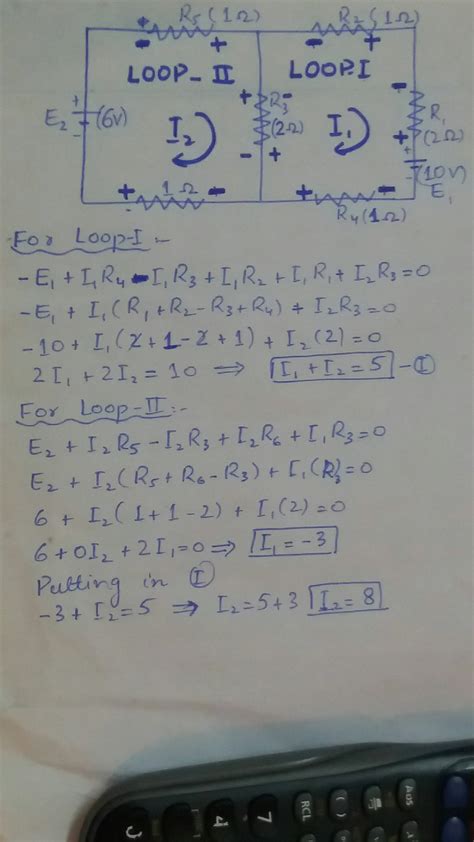 R5(1Ω) R2(1Ω)
- + - +
LOOP-II LOOP-I
+ - + -
E2 (6V) I2 R3 (2Ω) I1 R1 (2Ω)
- + +
(10V)
E1
+ 1Ω - + -
R4(1Ω)
For Loop-I :-
-E1 + I1R4 - I1R3 + I1R2 + I1R1 + I2R3 = 0
-E1 + I1(R1+R2-R3+R4) + I2R3 = 0
-10 + I1(2+1-2+1) + I2(2) = 0
2I1 + 2I2 = 10 ⇒ I1 + I2 = 5 - I
For Loop-II :-
E2 + I2R5 - I2R3 + I2R6 + I1R3 = 0
E2 + I2(R5+R6-R3) + I1(R3) = 0
6 + I2(1+1-2) + I1(2) = 0
6 + 0I2 + 2I1 = 0 ⇒ I1 = -3
Putting in I
-3 + I2 = 5 ⇒ I2 = 5+3 I2 = 8
AoS
RCL ( )
7
4